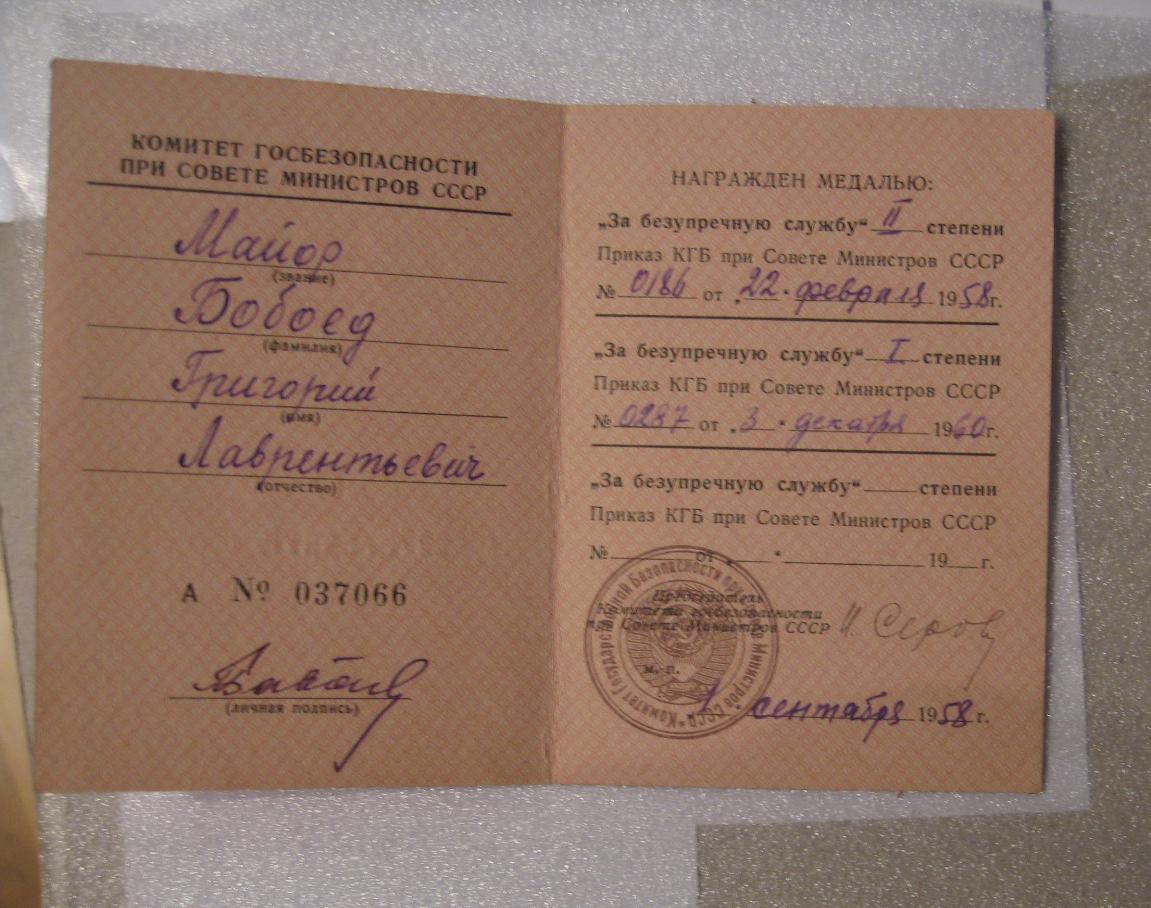 КОМИТЕТ ГОСБЕЗОПАСНОСТИ
ПРИ СОВЕТЕ МИНИСТРОВ СССР
Майор
(звание)
Бобоед
(фамилия)
Григорий
(имя)
Лаврентьевич
(отчество)
А № 037066
(личная подпись)
НАГРАЖДЕН МЕДАЛЬЮ:
„За безупречную службу“ II степени
Приказ КГБ при Совете Министров СССР
№ 0186 от „22 · февраля 1958г.
„За безупречную службу“ I степени
Приказ КГБ при Совете Министров СССР
№ 0287 от „3 · декабря 1960г.
„За безупречную службу“ степени
Приказ КГБ при Совете Министров СССР
№ от „ “ 19 г.
Председатель
Комитета госбезопасности
при Совете Министров СССР И. Серов
м. п.
сентября 1958г.
Комитет Государственной Безопасности при Совете Министров СССР